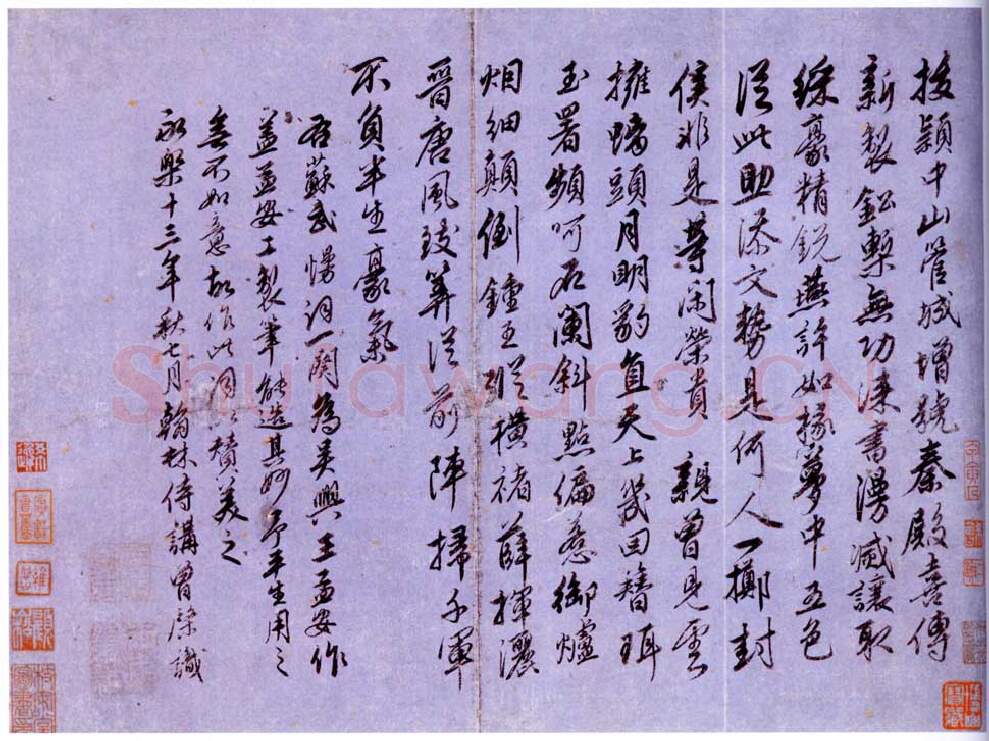 拔颖中山管城增號秦殿喜傳
新製鉛槧無功漆書漫滅讓取
綵豪精銳燕許如椽夢中五色
從此助添文勢是何人一擲封
侯非是等闲榮貴 親曾見雲
擁螭頭月明豹直天上幾回簪珥
玉署頻呵石闌斜點偏惹御爐
烟细顛倒鍾王縱横褚薛揮灑
晉唐風致筭從前陣掃千軍
不負半生豪氣
右蘇武慢词一闋為吴興王孟安作
蓋孟安工製筆能造其妙予平生用之
無不如意故作此詞以贊美之
永樂十三年秋七月翰林侍講曾棨識
Shufawang.CN